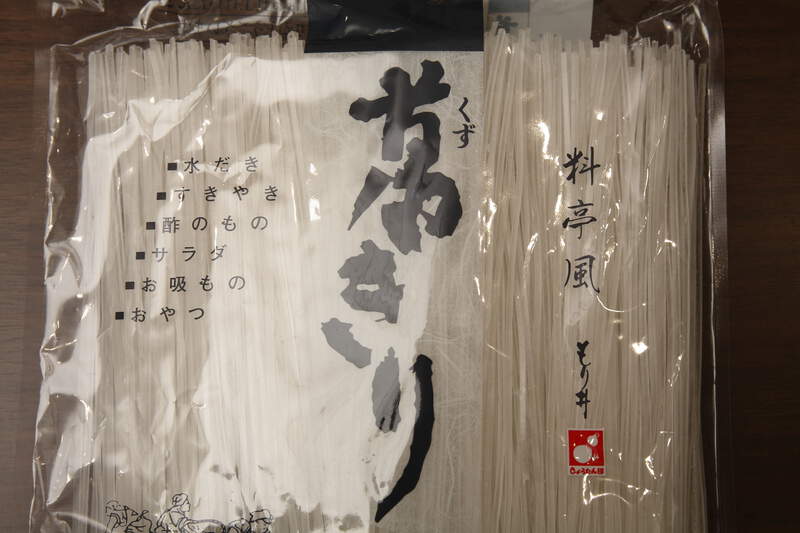 葛きり
くず
料亭風
もり井
ひょうたん印
■水だき
■すきやき
■酢のもの
■サラダ
■お吸もの
■おやつ